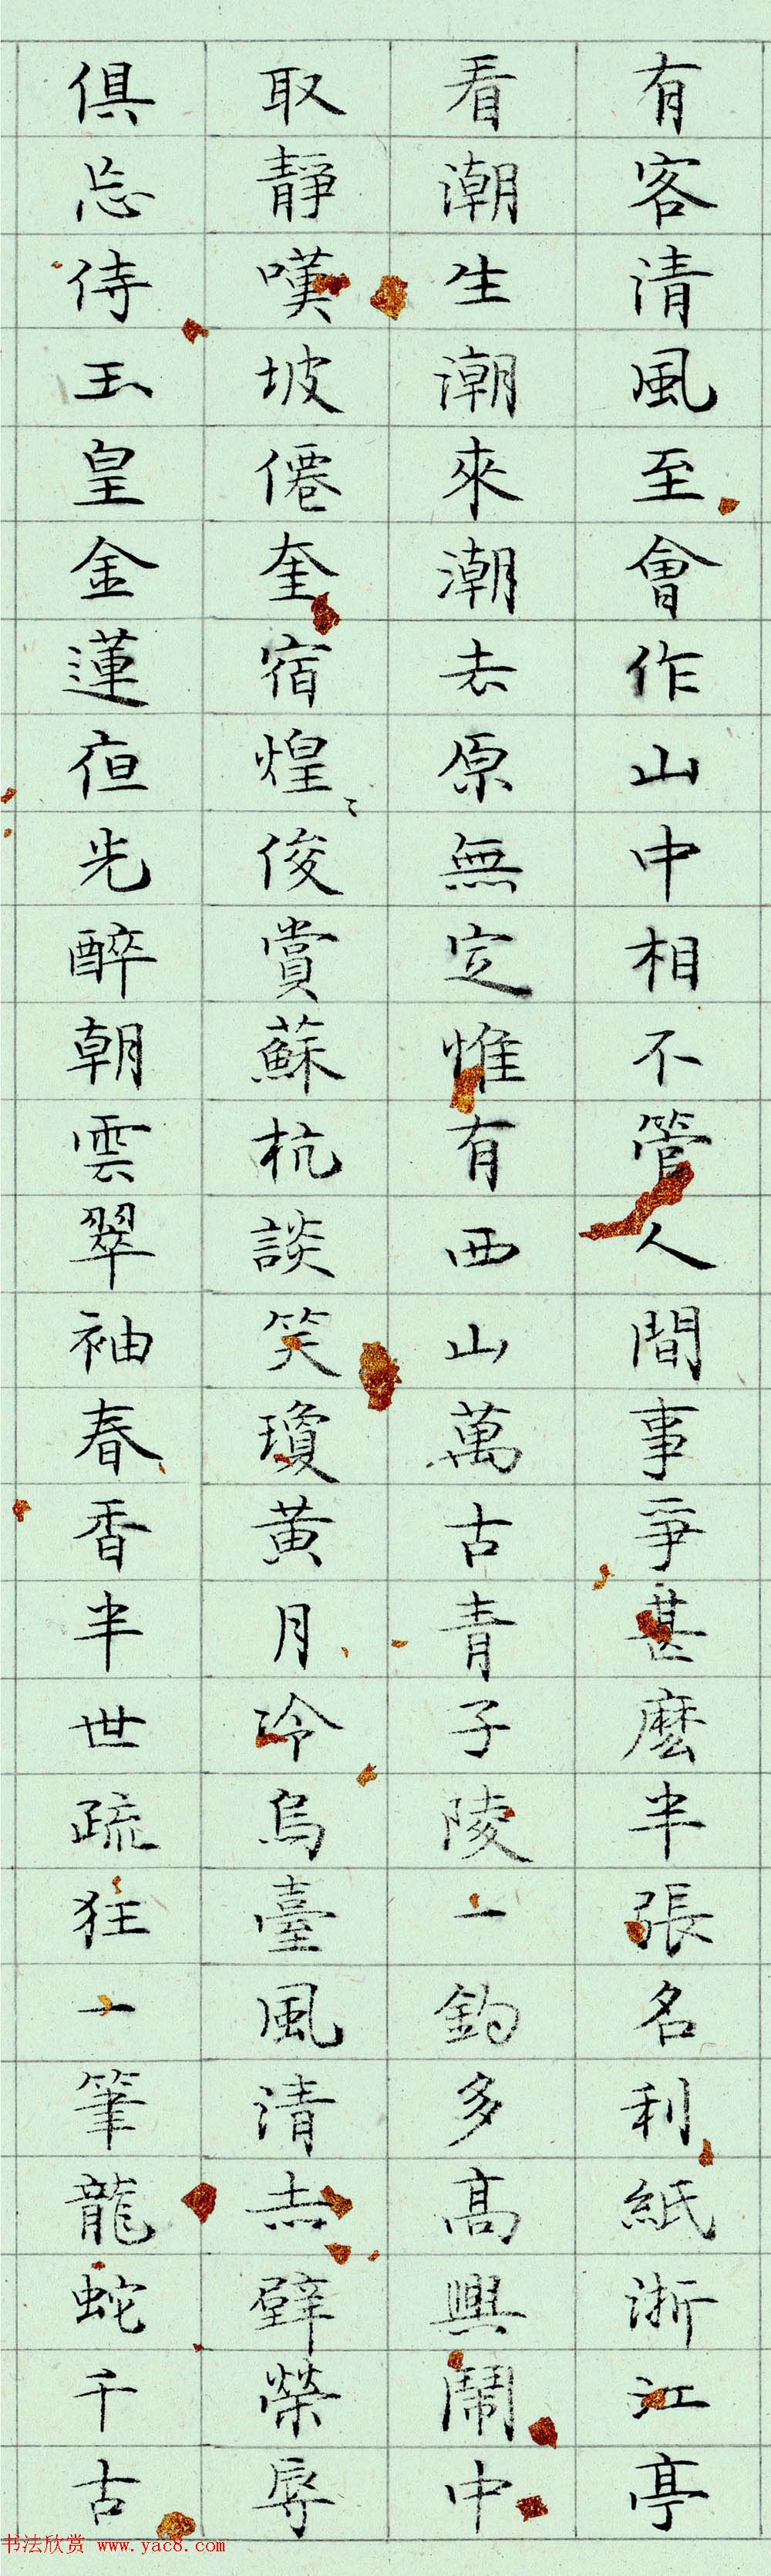 有客清風至會作山中相不管人間事爭甚麼半張名利紙浙江亭
看潮生潮來潮去原無定惟有西山萬古青子陵一釣多高興鬧中
取靜嘆坡僊奎宿煌〻俊賞蘇杭談笑瓊黃月冷烏臺風清赤壁榮辱
俱忘侍玉皇金蓮夜光醉朝雲翠袖春香半世疏狂一筆龍蛇千古
书法欣赏 www.yac8.com